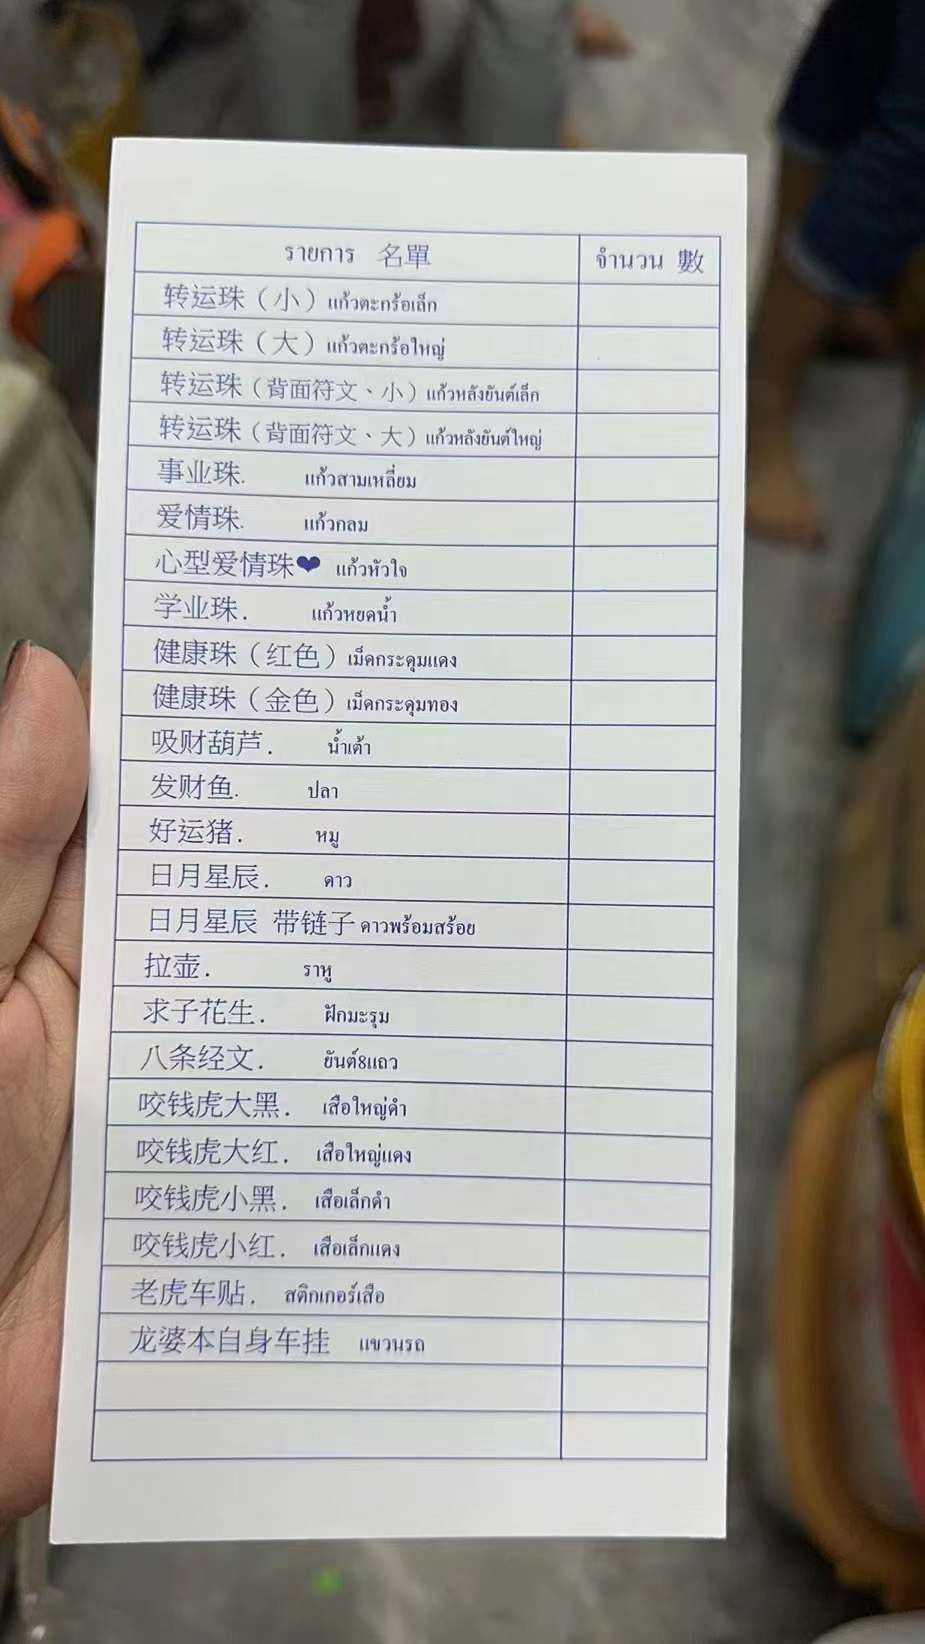 รายการ 名單 จำนวน 數
转运珠（小）แก้วตะกร้อเล็ก
转运珠（大）แก้วตะกร้อใหญ่
转运珠（背面符文、小）แก้วหลังยันต์เล็ก
转运珠（背面符文、大）แก้วหลังยันต์ใหญ่
事业珠. แก้วสามเหลี่ยม
爱情珠. แก้วกลม
心型爱情珠❤ แก้วหัวใจ
学业珠. แก้วหยดน้ำ
健康珠（红色）เม็ดกระดุมแดง
健康珠（金色）เม็ดกระดุมทอง
吸财葫芦. น้ำเต้า
发财鱼. ปลา
好运猪. หมู
日月星辰. ดาว
日月星辰 带链子 ดาวพร้อมสร้อย
拉壶. ราหู
求子花生. ฝักมะรุม
八条经文. ยันต์8แถว
咬钱虎大黑. เสือใหญ่ดำ
咬钱虎大红. เสือใหญ่แดง
咬钱虎小黑. เสือเล็กดำ
咬钱虎小红. เสือเล็กแดง
老虎车贴. สติกเกอร์เสือ
龙婆本自身车挂 แขวนรถ